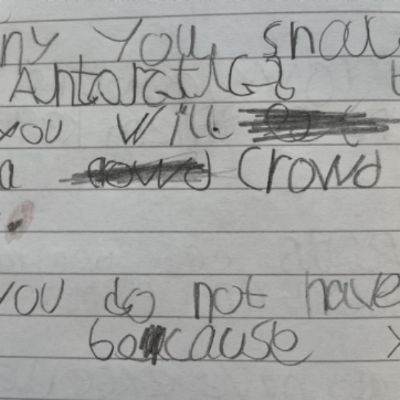 ny you shou
Antarctica t
you will
a crowd
you do not have
because y